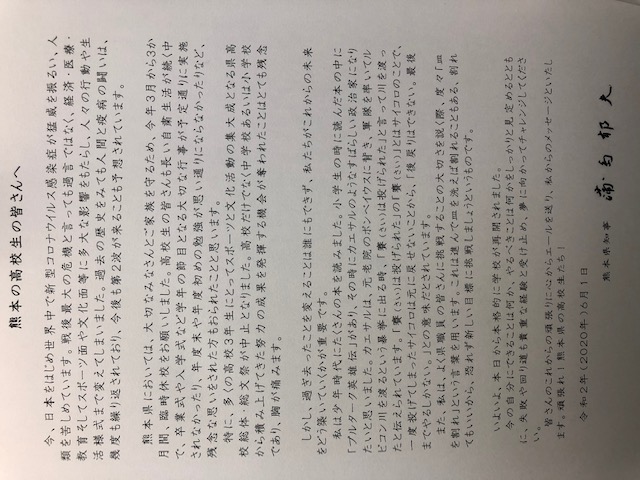 熊本の高校生の皆さんへ
今、日本をはじめ世界中で新型コロナウイルス感染症が猛威を振るい、人
類を苦しめています。戦後最大の危機と言っても過言ではなく、経済・医療・
教育そしてスポーツ面や文化面等に多大な影響をもたらし、人々の行動や生
活様式まで変えてしまいました。過去の歴史をみても人間と疫病の闘いは、
幾度も繰り返されており、今後も第2波が来ることも予想されています。
熊本県においては、大切なみなさんとご家族を守るため、今年3月から3か
月間、臨時休校をお願いしました。高校生の皆さんも長い自粛生活が続く中
で、卒業式や入学式など学年の節目となる大切な行事が予定通りに実施
されなかったり、年度末や年度初めの勉強が思い通りにならなかったりなど、
残念な思いをされた方もおられたことと思います。
特に、多くの高校3年生にとってスポーツと文化活動の集大成となる県高
校総体・総文祭が中止となりました。高校だけでなく中学校あるいは小学校
から積み上げてきた努力の成果を発揮する機会が奪われたことはとても残念
であり、胸が痛みます。
しかし、過ぎ去ったことを変えることは誰にもできず、私たちがこれからの未来
をどう築いていくかが重要です。
私は少年時代にたくさんの本を読みました。小学生の時に読んだ本の中に
「プルターク英雄伝」があり、その時にカエサルのようなすばらしい政治家になり
たいと思いました。カエサルは、元老院のポンペイウスに背き、軍隊を率いてル
ビコン川を渡るという暴挙に出る時、「賽(さい)は投げられた」と言って川を渡っ
たと伝えられています。「賽(さい)は投げられた」の「賽(さい)」とはサイコロのことで、
一度投げてしまったサイコロは元に戻せないことから、「後戻りはできない。最後
までやるしかない。」との意味だとされています。
また、私は、よく県職員の皆さんに挑戦することの大切さを説く際、度々「皿
を割れ」という言葉を用います。これは進んで皿を洗えば割れることもある、割れ
てもいいから、恐れず新しい目標に挑戦しましょうというものです。
いよいよ、本日から本格的に学校が再開されました。
今の自分にできることは何か、やるべきことは何かをしっかりと見定めるととも
に、失敗や回り道も貴重な経験と受け止め、夢に向かってチャレンジしてくださ
い。
皆さんのこれからの頑張りに心からエールを送り、私からのメッセージといたし
ます。頑張れ!熊本県の高校生たち!
令和2年(2020年)6月1日
熊本県知事 蒲島郁夫